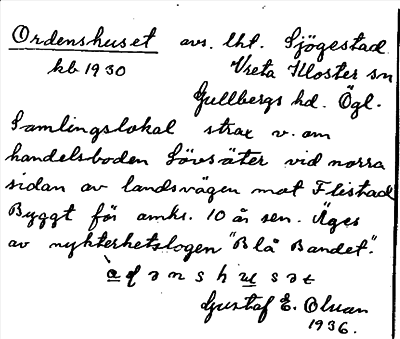 Ordenshuset avs. lht. Sjögestad
kb 1930 Vreta Kloster sn
Gullbergs hd. Ögl.
Samlingslokal strax v. om
handelsboden Lövsäter vid norra
sidan av landsvägen mot Flistad
Byggt för omkr. 10 år sen. Äges
av nykterhetslogen "Blå Bandet".
Gustaf E. Olsson
1936.